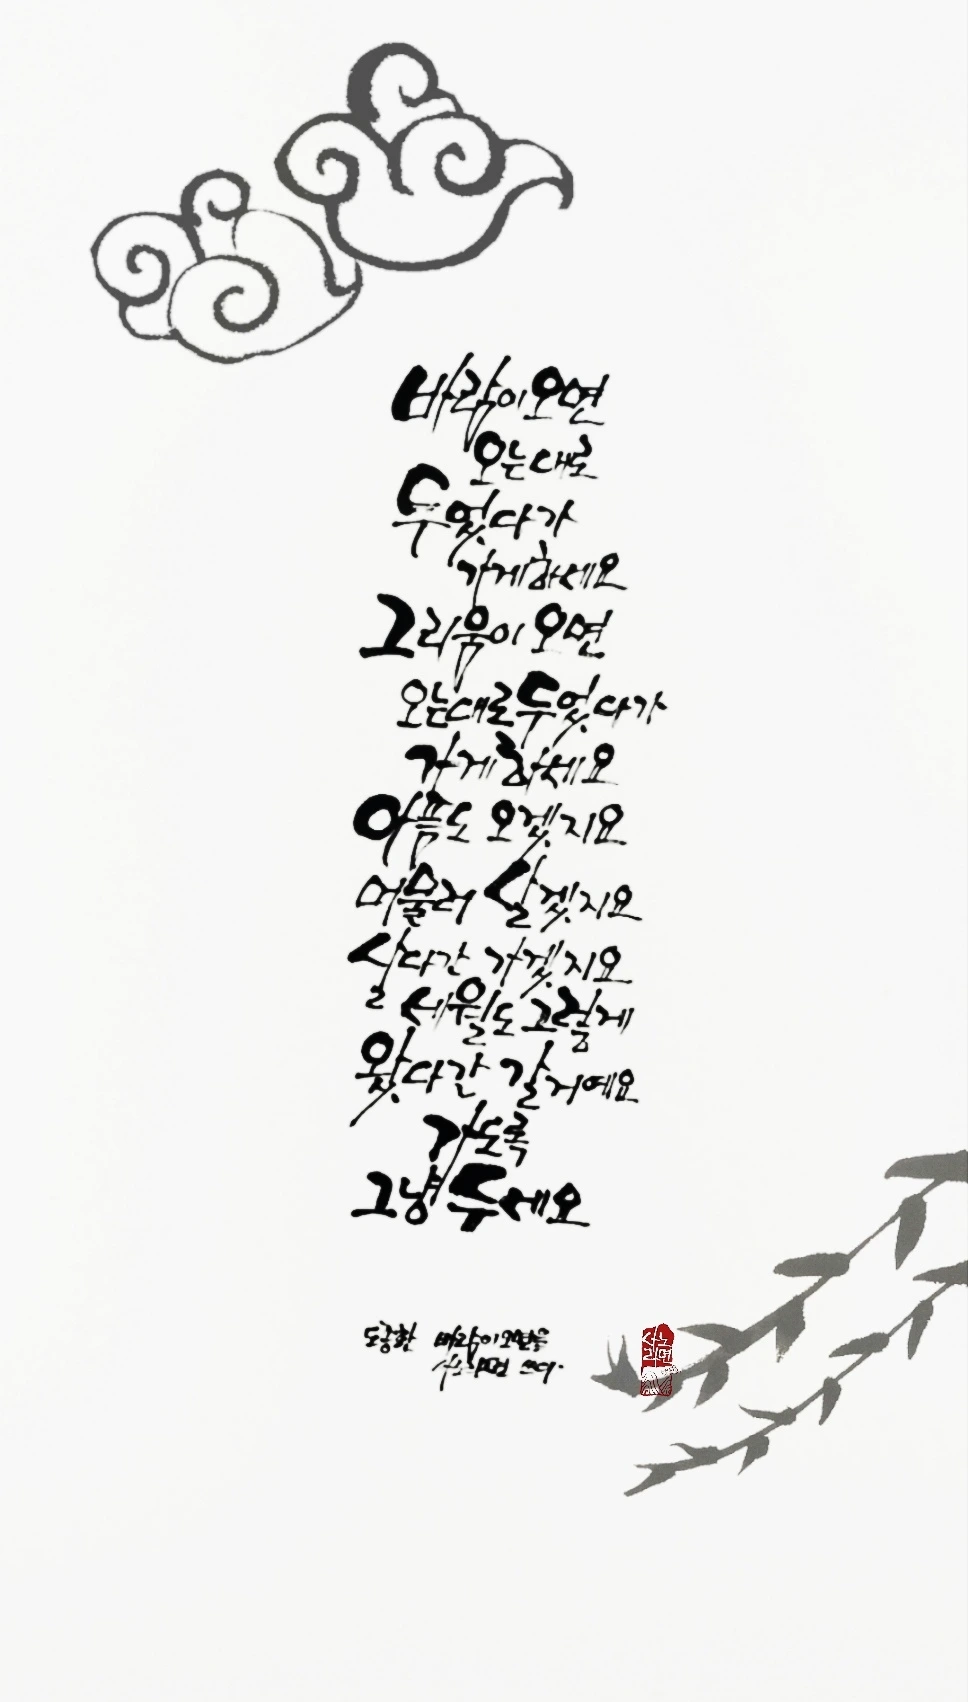 바람이 오면
오는대로
두었다가
가게하세요
그리움이 오면
오는대로 두었다가
가게 하세요
아픔도 오겠지요
머물러 살겠지요
살다간 가겠지요
세월도 그렇게
왔다간 갈거예요
가도록
그냥 두세요
도종환 바람이오면을
쓰다.